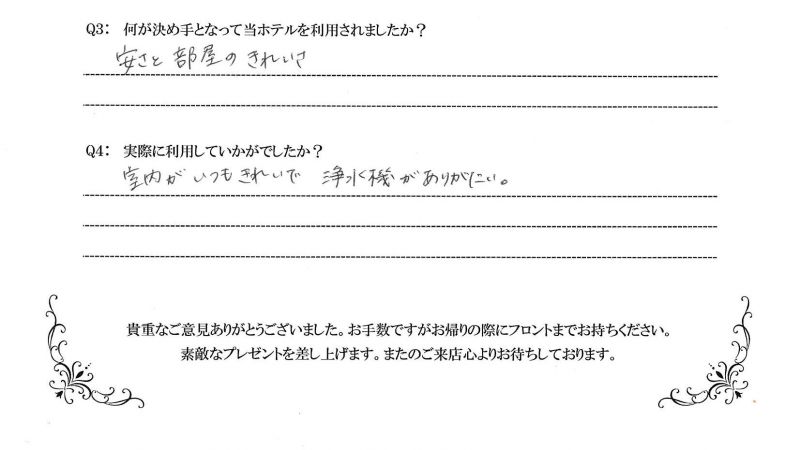 Q3： 何が決め手となって当ホテルを利用されましたか？
安さと 部屋の きれいさ
Q4： 実際に利用していかがでしたか？
室内が いつも きれいで 浄水機が ありがたい。
貴重なご意見ありがとうございました。お手数ですがお帰りの際にフロントまでお持ちください。
素敵なプレゼントを差し上げます。またのご来店心よりお待ちしております。